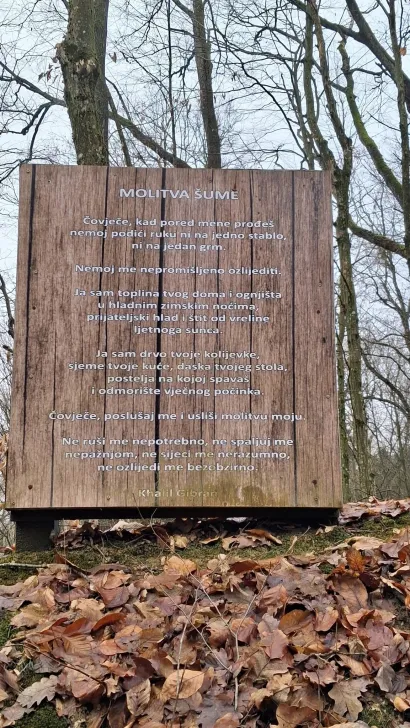 MOLITVA ŠUME
Čovječe, kad pored mene prođeš
nemoj podići ruku ni na jedno stablo,
ni na jedan grm.
Nemoj me nepromišljeno ozlijediti.
Ja sam toplina tvog doma i ognjišta
u hladnim zimskim noćima,
prijateljski hlad i štit od vreline
ljetnoga sunca.
Ja sam drvo tvoje kolijevke,
sjeme tvoje kuće, daska tvojeg stola,
postelja na kojoj spavaš
i odmorište vječnog počinka.
Čovječe, poslušaj me i usliši molitvu moju.
Ne ruši me nepotrebno, ne spaljuj me
nepažnjom, ne sijeci me nerazumno,
ne ozlijedi me bezobzirno.
Khalil Gibran